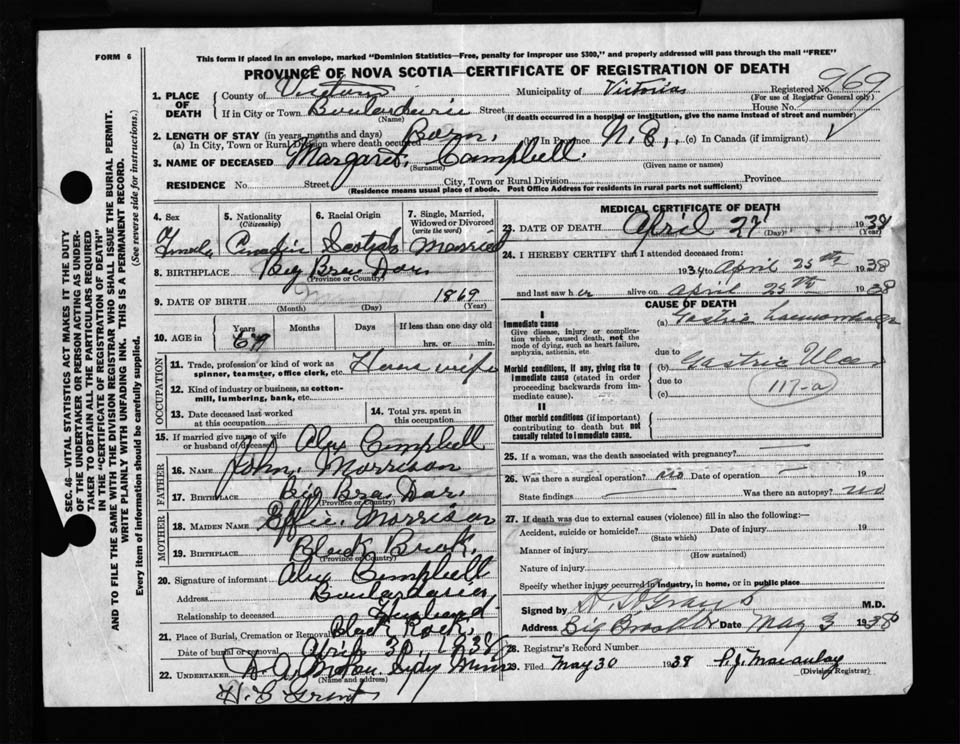 FORM 6
This form if placed in an envelope, marked "Dominion Statistics—Free, penalty for improper use $300," and properly addressed will pass through the mail "FREE"
PROVINCE OF NOVA SCOTIA—CERTIFICATE OF REGISTRATION OF DEATH
1. PLACE OF DEATH
County of Victoria Municipality of Victoria Registered No. 969
(For use of Registrar General only)
If in City or Town Boulardarie Street House No.
(Name) (If death occurred in a hospital or institution, give the name instead of street and number)
2. LENGTH OF STAY (in years, months and days)
(a) In City, Town or Rural Division where death occurred Born. (b) In Province N.S. (c) In Canada (if immigrant)
3. NAME OF DECEASED Margaret. Campbell.
(Surname) (Given name or names)
RESIDENCE No. Street City, Town or Rural Division Province
(Residence means usual place of abode. Post Office Address for residents in rural parts not sufficient)
4. Sex
Female
5. Nationality
(Citizenship)
Canadian
6. Racial Origin
Scotish
7. Single, Married, Widowed or Divorced
(write the word)
Married
8. BIRTHPLACE Big Bras Dor.
(Province or Country)
9. DATE OF BIRTH 1869
(Month) (Day) (Year)
10. AGE in Years Months Days If less than one day old
69 hrs. or min.
OCCUPATION
11. Trade, profession or kind of work as spinner, teamster, office clerk, etc. House wife
12. Kind of industry or business, as cotton-mill, lumbering, bank, etc.
13. Date deceased last worked at this occupation
14. Total yrs. spent in this occupation
15. If married give name of wife or husband of deceased Alex Campbell
FATHER
16. NAME John. Morrison
17. BIRTHPLACE Big Bras Dor.
(Province or Country)
MOTHER
18. MAIDEN NAME Effie. Morrison
19. BIRTHPLACE Black Brook.
(Province or Country)
20. Signature of informant Alex Campbell
Address Boulardarie,
Relationship to deceased Husband
21. Place of Burial, Cremation or Removal Black Rock.
Date of burial or removal April 30, 1938
22. UNDERTAKER
(Name and address)
H. C. Grant
MEDICAL CERTIFICATE OF DEATH
23. DATE OF DEATH April 27 1938
(Month) (Day) (Year)
24. I HEREBY CERTIFY that I attended deceased from:
1934 to April 25th 1938
and last saw her alive on April 25th 1938
CAUSE OF DEATH
I
Immediate cause
Give disease, injury or complication which caused death, not the mode of dying, such as heart failure, asphyxia, asthenia, etc.
(a) Gastric haemorrhage
due to
Morbid conditions, if any, giving rise to immediate cause (stated in order proceeding backwards from immediate cause).
(b) Gastric Ulcer
due to
(c) 117-a
II
Other morbid conditions (if important) contributing to death but not causally related to immediate cause.
25. If a woman, was the death associated with pregnancy? —
26. Was there a surgical operation? no Date of operation — 19
State findings — Was there an autopsy? no
27. If death was due to external causes (violence) fill in also the following:—
Accident, suicide or homicide? Date of injury 19
(State which)
Manner of injury
(How sustained)
Nature of injury
Specify whether injury occurred in industry, in home, or in public place
Signed by M.D.
Address Big Bras d'Or Date May 3 1938
28. Registrar's Record Number
29. Filed May 30 1938 Macaulay
(Division Registrar)
SEC. 46—VITAL STATISTICS ACT MAKES IT THE DUTY
OF THE UNDERTAKER OR PERSON ACTING AS UNDER-
TAKER TO OBTAIN ALL THE PARTICULARS REQUIRED
IN THE "CERTIFICATE OF REGISTRATION OF DEATH"
AND TO FILE THE SAME WITH THE DIVISION REGISTRAR WHO SHALL ISSUE THE BURIAL PERMIT.
WRITE PLAINLY WITH UNFADING INK. THIS IS A PERMANENT RECORD.
Every item of information should be carefully supplied. (See reverse side for instructions.)